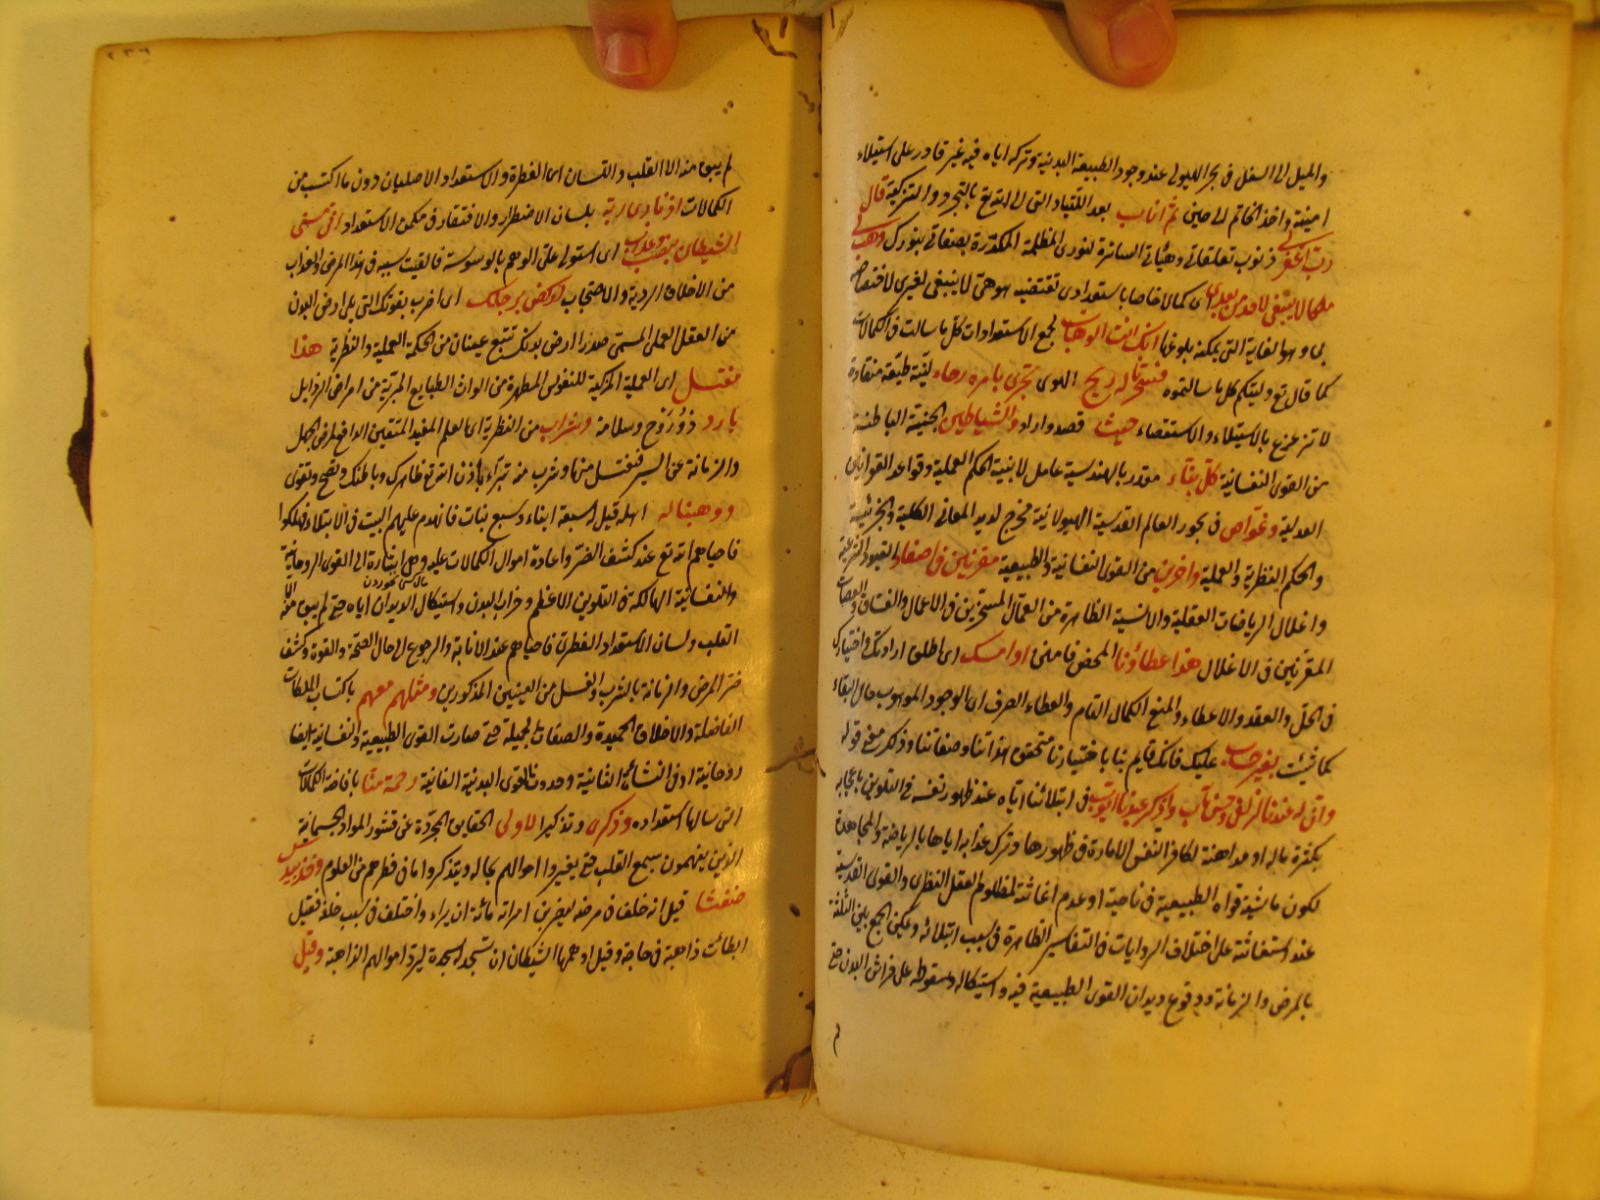 والميل الى السفل فى بحر الهيولى عند وجود الطبيعة البدنية وتركه اياه فيه غير قادر على استيلاء
امينة واخذ الخاتم الى حين ثم اناب بعد اللتيا والتى الى الله تع بالتجرد والتزكية قال
رب اغفر لى ذنوب تعلقاتى وهيآتى الساترة لنورى المظلمة المكدرة بصفاتى بنورك وهب لى
ملكا لا ينبغى لاحد من بعدى اى كمالا خاصا باستعدادى تقتضيه هويتى لا ينبغى لغيرى لاختصاصه
بى وهو الغاية التى يمكنه بلوغها انك انت الوهاب لجميع الاستعدادات كل ما سالت من الكمالات
كما قال تع وآتيكم كل ما سالتموه فسخرنا له ريح الهوى تجرى بامره رخاء لينة طيعة منقادة
لا تزعزع بالاستيلاء والاستعصاء حيث قصد واراد والشياطين الجنية الباطنة
من القوى النفسانية كل بناء مقدر بالهندسة عامل لابنية الحكم العملية وقواعد القوانين
العدلية وغواص فى بحور العالم القدسية الهيولانية مخرج لدرر المعانى الكلية والجزئية
والحكم النظرية والعملية واخرين من القوى النفسانية والطبيعية مقرنين فى اصفاد القيود الشرعية
واغلال الرياضات العقلية والانسية الظاهرة من العمال المسخرين فى الاعمال والفساق والعصاة
المقرنين فى الاغلال هذا عطاؤنا المحض فامنن او امسك اى اطلق ارادتك واختيارك
فى الحل والعقد والاعطاء والمنع الكمال التام والعطاء الصرف اى الوجود الموهوب حال البقاء
كما شئت بغير حساب عليك فانك قايم بنا باختيارنا متحقق بذاتنا وصفاتنا وذلك معنى قوله
وان له عندنا لزلفى وحسن مآب واذكر عبدنا ايوب فى ابتلائنا اياه عند ظهور نفسه فى التلوين باعجابه
بكثرة ماله او مداهنة لكافر النفس الامارة فى ظهورها وترك غذابه اياها بالرياضة والمجاهدة
لكون ماشية قواه الطبيعية فى ناحية او عدم اغاثة لمظلوم العقل النظرى والقوى القدسية
عند استغاثته على اختلاف الروايات فى التفاسير الظاهرة فى سبب ابتلائه ويمكن الجمع بين الثلثة
بالمرض والزمانة ووقوع ديدان القوى الطبيعية فيه واستيكاله وسقوطه على فراش البدن حتى
لم يبق منه الا القلب واللسان اى الفطرة والاستعداد الاصليان دون ما اكتسب من
الكمالات اذ نادى ربه بلسان الاضطرار والافتقار فى مكمن الاستعداد انى مسنى
الشيطان بنصب وعذاب اى استولى على الوهم بالوسوسة فالقيت بسببه فى هذا المرض والعذاب
من الاخلاق الردية والاحتجاب اركض برجلك اى اضرب بقوتك التى تلى ارض البدن
من العقل العملى المسمى صدرا ارض بدنك تنبع عينان من الحكمة العملية والنظرية هذا
مغتسل اى العملية المزكية للنفوس المطهرة من الواث الطبايع المبرئة من امراض الرذايل
بارد ذو روح وسلامة وشراب من النظرية اى العلم المفيد لليقين الدافع لمرض الجهل
والزمانة عن السير فتغتسل منها وتشرب منه تبرأ باذن الله تع ظاهرك وباطنك وتصح وتقوى
ووهبنا له اهله قيل له سبعة ابناء وسبع بنات فانهدم عليهم البيت فى الابتلاء فهلكوا
فاحياهم الله تع عند كشف الضر واعادة اموال الكمالات عليه وهى اشارة الى القوى الروحانية
والنفسانية الهالكة فى التلوين الاعظم وخراب البدن واستيكال الديدان اياه حتى لم يبق منه الا
القلب ولسان الاستعداد الفطرى فاحياهم عند الانابة والرجوع الى حال الصحة والقوة وكشف
ضر المرض والزمانة بالشرب والغسل من العينين المذكورين ومثلهم معهم باكتساب الملكات
الفاضلة والاخلاق الحميدة والصفات الجميلة حتى صارت القوى الطبيعية والنفسانية ايضا
روحانية او فى النشأة الثانية وحدوث القوى البدنية الفانية رحمة منا بافاضة الكمالات
التى سالها استعداده وذكرى وتذكيرا لاولى الحقايق المجردة عن قشور المواد الجسمانية
الذين يفهمون بسمع القلب حتى يعتبروا احوالهم بحاله ويتذكروا ما فى فطرهم من العلوم وخذ بيدك
ضغثا قيل انه حلف فى مرضه ليضربن امراته مائة ان برء واختلف فى سبب حلفه فقيل
ابطائت ذاهبة فى حاجة وقيل اوهمها الشيطان ان تسجد السجدة ليرد اموالهم الذاهبة وقيل